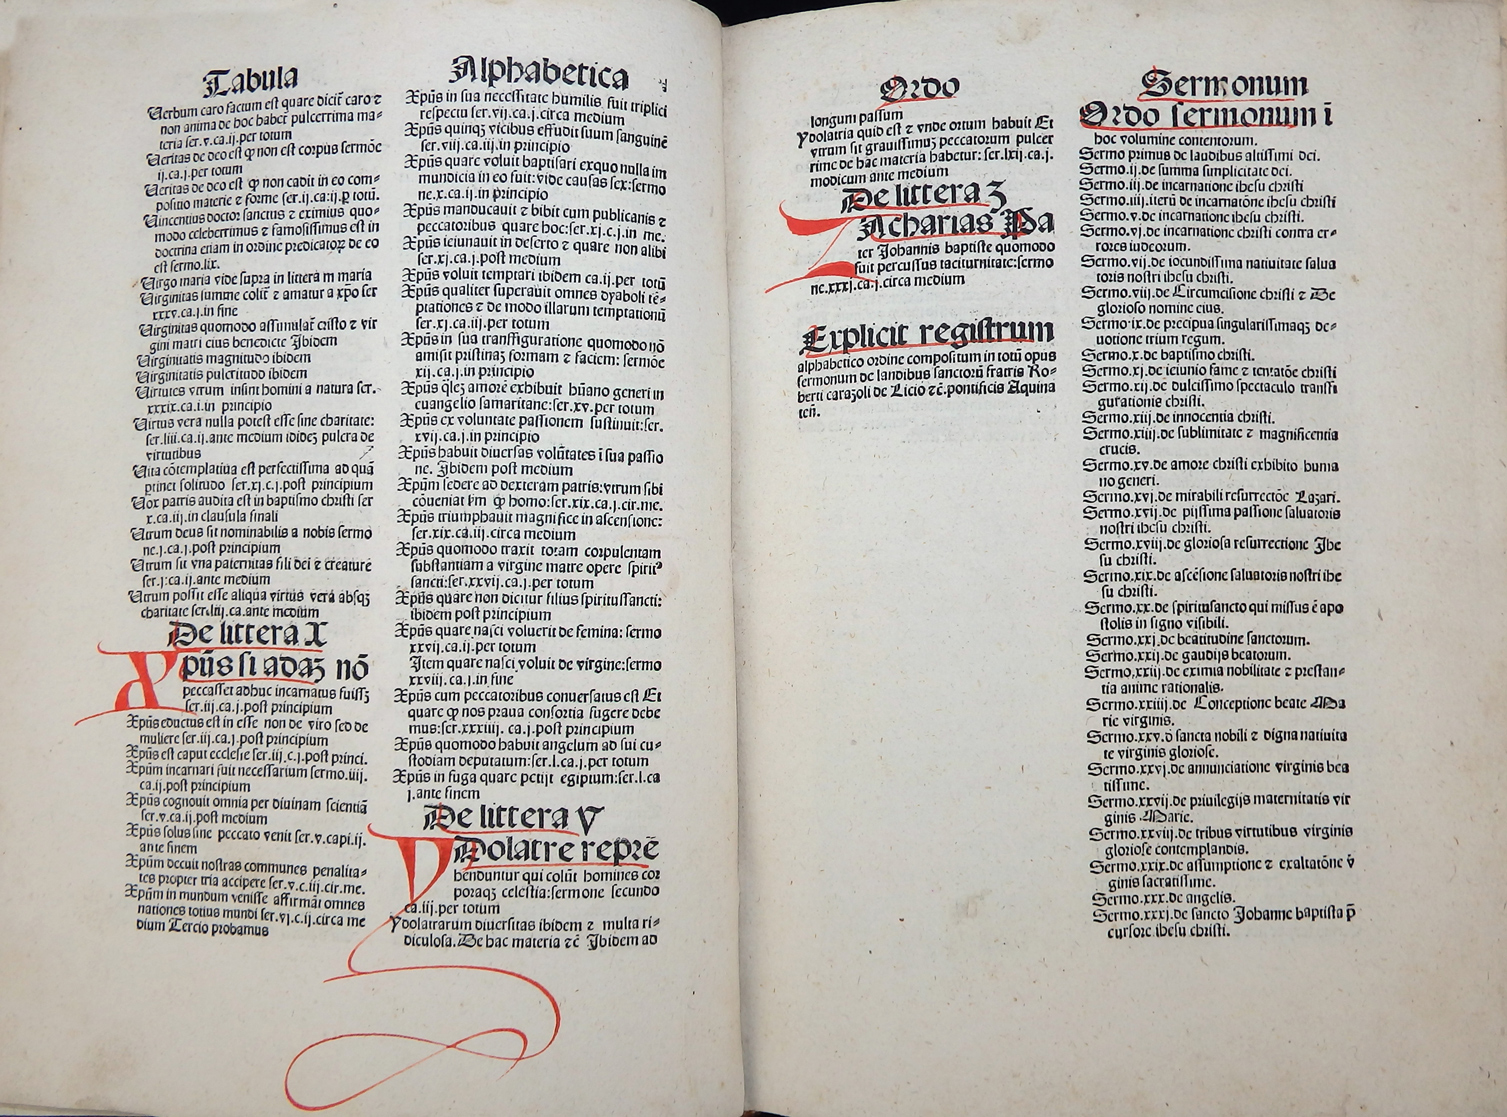 Tabula
Verbum caro factum est quare dicit̃ caro ⁊
non anima de hoc habet̃ pulcerrima ma⸗
teria ser.v.ca.ij.per totum
Veritas de deo est ꝙ non est corpus sermõe
ij.ca.j.per totum
Veritas de deo est ꝙ non cadit in eo com⸗
positio materie ⁊ forme ser.ij.ca.ij.ꝑ totũ.
Vincentius doctor sanctus ⁊ eximius quo⸗
modo celeberrimus ⁊ famosissimus est in
doctrina etiam in ordine predicatoꝝ de eo
est sermo.lix.
Virgo maria vide supra in littera m maria
Virginitas summe colit̃ ⁊ amatur a xp̃o ser
xxxv.ca.j.in fine
Virginitas quomodo assimulat̃ cristo ⁊ vir
gini matri eius benedicte Ibidem
Virginitatis magnitudo ibidem
Virginitatis pulcritudo ibidem
Virtutes vtrum insint homini a natura ser.
xxxix.ca.i.in principio
Virtus vera nulla potest esse sine charitate:
ser.liii.ca.ij.ante medium ibideꝫ pulcra de
virtutibus
Vita cõtemplatiua est perfectissima ad quã
princt solitudo ser.xj.c.j.post principium
Vox patris audita est in baptismo christi ser
x.ca.iij.in clausula finali
Vtrum deus sit nominabilis a nobis sermo
ne.j.ca.j.post principium
Vtrum sit vna paternitas fili dei ⁊ creature
ser.j.ca.ij.ante medium
Vtrum possit esse aliqua virtus vera absqꝫ
charitate ser.liij.ca.ante medium
De littera X
Xpũs si adaꝫ nõ
peccasset adhuc incarnatus fuissꝫ
ser.iij.ca.j.post principium
Xpũs eductus est in esse non de viro sed de
muliere ser.iij.ca.j.post principium
Xpũs est caput ecclesie ser.iij.c.j.post princi.
Xpũm incarnari fuit necessarium sermo.iiij.
ca.ij.post principium
Xpũs cognouit omnia per diuinam scientiã
ser.v.ca.ij.post medium
Xpũs solus sine peccato venit ser.v.capi.ij.
ante finem
Xpũm decuit nostras communes penalita⸗
tes propter tria accipere ser.v.c.iij.cir.me.
Xpũm in mundum venisse affirmãt omnes
nationes totius mundi ser.vj.c.ij.circa me
dium Tercio probamus
Alphabetica
Xpũs in sua necessitate humilis fuit triplici
respectu ser.vij.ca.j.circa medium
Xpũs quinqꝫ vicibus effudit suum sanguinẽ
ser.viij.ca.iij.in principio
Xpũs quare voluit baptisari exquo nulla im
mundicia in eo fuit:vide causas sex:sermo
ne.x.ca.ij.in principio
Xpũs manducauit ⁊ bibit cum publicanis ⁊
peccatoribus quare hoc:ser.xj.c.j.in me.
Xpũs ieiunauit in deserto ⁊ quare non alibi
ser.xj.ca.j.post medium
Xpũs voluit temptari ibidem ca.ij.per totũ
Xpũs qualiter superauit omnes dyaboli tẽ⸗
ptationes ⁊ de modo illarum temptationũ
ser.xj.ca.iij.per totum
Xpũs in sua transfiguratione quomodo nõ
amisit pristinaꝫ formam ⁊ faciem: sermõe
xij.ca.j.in principio
Xpũs q̃leꝫ amorẽ exhibuit hũano generi in
euangelio samaritane:ser.xv.per totum
Xpũs ex voluntate passionem sustinuit:ser.
xvij.ca.j.in principio
Xpũs habuit diuersas volũtates ĩ sua passio
ne. Ibidem post medium
Xpũm sedere ad dexteram patris:vtrum sibi
cõueniat ẜm ꝙ homo:ser.xix.ca.j.cir.me.
Xpũs triumphauit magnifice in ascensione:
ser.xix.ca.iij.circa medium
Xpũs quomodo traxit totam corpulentam
substantiam a virgine matre opere spiritꝰ
sancti:ser.xxvij.ca.j.per totum
Xpũs quare non dicitur filius spiritussancti:
ibidem post principium
Xpũs quare nasci voluerit de femina: sermo
xxvij.ca.ij.per totum
Item quare nasci voluit de virgine:sermo
xxviij.ca.j.in fine
Xpũs cum peccatoribus conuersatus est Et
quare ꝙ nos praua consortia fugere debe
mus:ser.xxxiiij.ca.j.post principium
Xpũs quomodo habuit angelum ad sui cu⸗
stodiam deputatum:ser.l.ca.j.per totum
Xpũs in fuga quare petijt egiptum:ser.l.ca
j.ante finem
De littera Y
Ydolatre reprẽ
henduntur qui colũt homines cor
poraqꝫ celestia:sermone secundo
ca.iij.per totum
Ydolatrarum diuersitas ibidem ⁊ multa ri⸗
diculosa.De hac materia ⁊c̃ Ibidem ad
Ordo
longum passum
Ydolatria quid est ⁊ vnde ortum habuit Et
vtrum sit grauissimuꝫ peccatorum pulcer
rime de hac materia habetur: ser.lxij.ca.j.
modicum ante medium
De littera Z
Zacharias Pa
ter Johannis baptiste quomodo
fuit percussus taciturnitate:sermo
ne.xxxj.ca.j.circa medium
Explicit registrum
alphabetico ordine compositum in totũ opus
sermonum de laudibus sanctorũ fratris Ro⸗
berti caraꝫoli de Licio ⁊c̃.pontificis Aquina
teñ.
Sermonum
Ordo sermonum ĩ
hoc volumine contentorum.
Sermo primus de laudibus altissimi dei.
Sermo.ij.de summa simplicitate dei.
Sermo.iij.de incarnatione ihesu christi
Sermo.iiij.iterũ de incarnatõne ihesu christi
Sermo.v.de incarnatione ihesu christi.
Sermo.vj.de incarnatione christi contra er⸗
rores iudeorum.
Sermo.vij.de iocundissima natiuitate salua
toris nostri ihesu christi.
Sermo.viij.de Circumcisione christi ⁊ De
glorioso nomine eius.
Sermo.ix.de precipua singularissimaqꝫ de⸗
uotione trium regum.
Sermo.x.de baptismo christi.
Sermo.xj.de ieiunio fame ⁊ tentatõe christi
Sermo.xij.de dulcissimo spectaculo transfi
gurationis christi.
Sermo.xiij.de innocentia christi.
Sermo.xiiij.de sublimitate ⁊ magnificentia
crucis.
Sermo.xv.de amore christi exhibito huma
no generi.
Sermo.xvj.de mirabili resurrectõe Lazari.
Sermo.xvij.de pijssima passione saluatoris
nostri ihesu christi.
Sermo.xviij.de gloriosa resurrectione Ihe
su christi.
Sermo.xix.de ascẽsione saluatoris nostri ihe
su christi.
Sermo.xx.de spiritusancto qui missus ẽ apo
stolis in signo visibili.
Sermo.xxj.de beatitudine sanctorum.
Sermo.xxij.de gaudijs beatorum.
Sermo.xxiij.de eximia nobilitate ⁊ prestan⸗
tia anime rationalis.
Sermo.xxiiij.de Conceptione beate Ma
rie virginis.
Sermo.xxv.d̃ sancta nobili ⁊ digna natiuita
te virginis gloriose.
Sermo.xxvj.de annunciatione virginis bea
tissime.
Sermo.xxvij.de priuilegijs maternitatis vir
ginis Marie.
Sermo.xxviij.de tribus virtutibus virginis
gloriose contemplandis.
Sermo.xxix.de assumptione ⁊ exaltatõne ṽ
ginis sacratissime.
Sermo.xxx.de angelis.
Sermo.xxxj.de sancto Johanne baptista p̃
cursore ihesu christi.